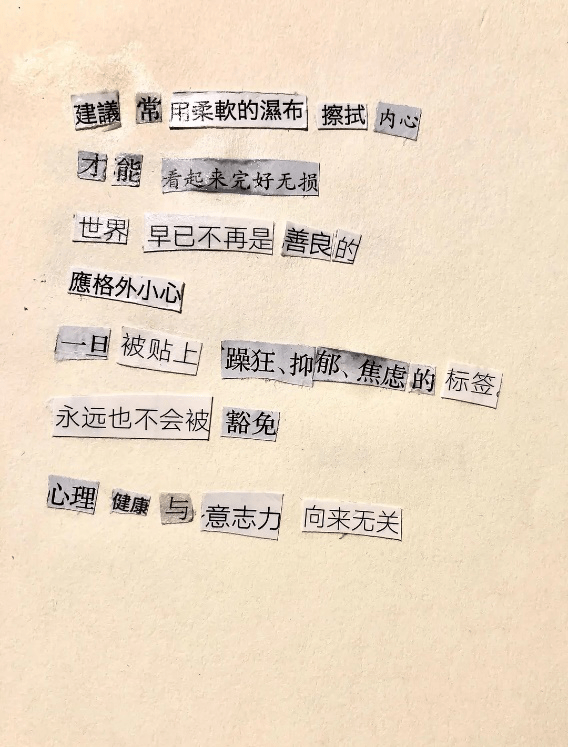 建議 常 用柔軟的濕布 擦拭 内心
才能 看起来完好无损
世界 早已不再是 善良的
應格外小心
一旦 被贴上 躁狂、抑郁、焦虑的 标签
永远也不会被 豁免
心理 健康 与 意志力 向来无关